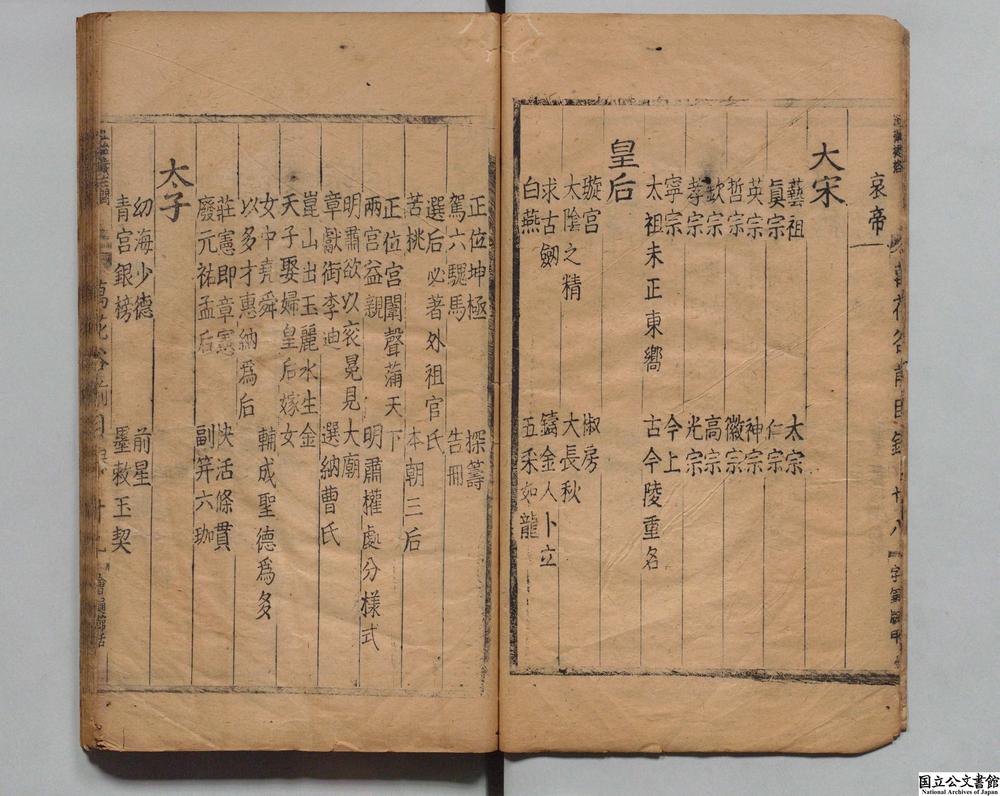 哀帝
大宋
藝祖 太宗
真宗 仁宗
英宗 神宗
哲宗 徽宗
欽宗 高宗
孝宗 光宗
寧宗 今上
太祖未正東嚮 古今陵重名
皇后
璇宮 俶房
太陰之精 大長秋
求古劒 鑄金人卜立
白燕 五采如龍
正位坤極 探籌
駕六騩馬 告冊
選后必著外祖官氏
苦挑 本朝三后
正位宮闈聲蒲天下
兩宮益親 明肅權處分樣式
明肅欲以衮冕見大廟
章獻銜李迪 選納曹氏
崑山出玉麗水生金
天子娶婦皇后嫁女
女中堯舜 輔成聖德為多
以多才惠納為后
莊憲即章憲 快活條貫
廢元祐孟后 副笄六珈
太子
幼海少德 前星
青宮銀榜 墨敕玉契
国立公文書館
National Archives of Japan